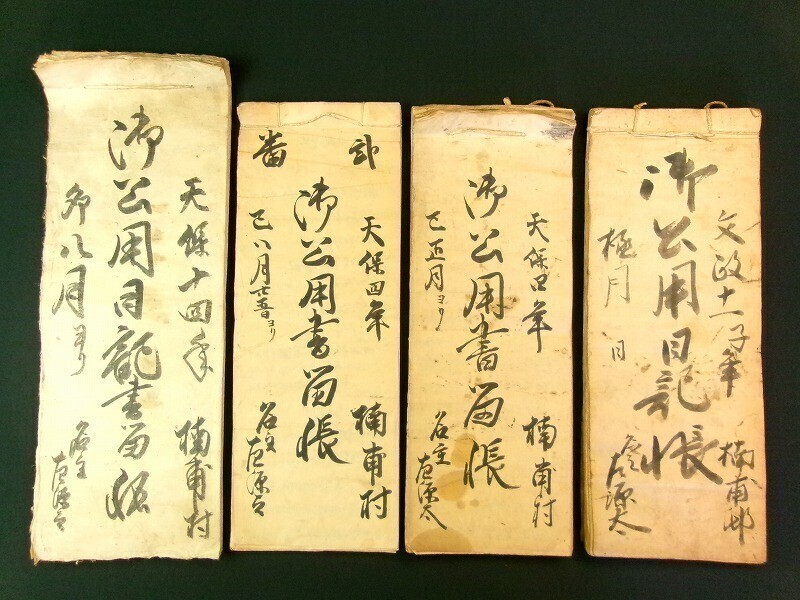 文政十一子年
楠甫邨
御公用日記帳
極月 日
名主
左源太
天保四年
楠甫村
御公用書留帳
巳正月ヨリ
名主
左源太
弐番
天保四年
楠甫村
御公用書留帳
巳八月廿五日ヨリ
名主
左源太
天保十四年
楠甫村
御公用日記書留帳
卯八月ヨリ
名主
左源太